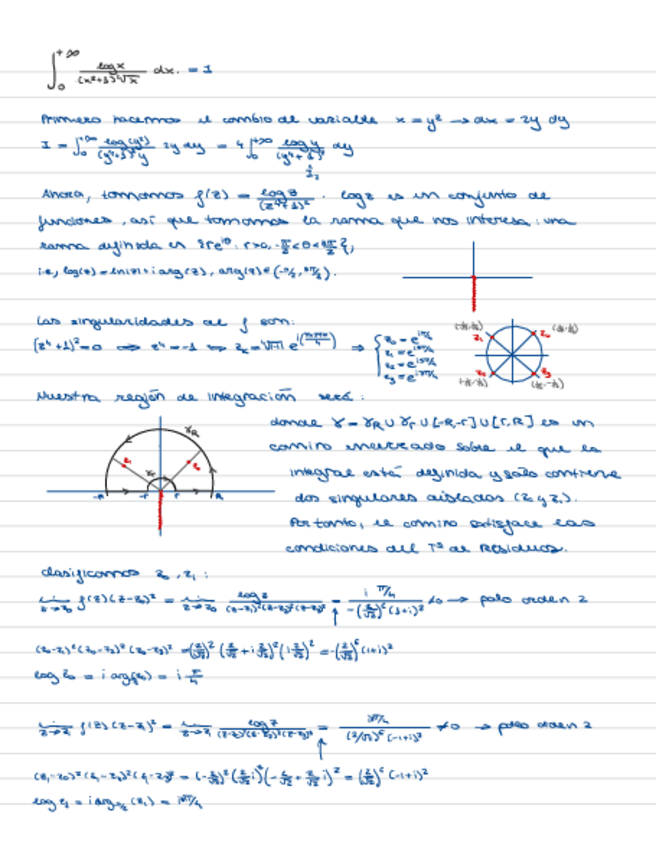 ∫₀^{+∞} log x / (x²+1)²√x dx = I
Primero hacemos el cambio de variable x = y² → dx = 2y dy
I = ∫₀^{+∞} log(y²) / (y⁴+1)² y 2y dy = 4 ∫₀^{+∞} log y / (y⁴+1)² dy
I₂
Ahora, tomamos f(z) = log z / (z⁴+1)² . log z es un conjunto de
funciones, así que tomamos la rama que nos interesa: una
rama definida en {re^{iθ} : r>0, -π/2 < θ < 3π/2},
i.e., log(z) = ln|z| + i arg(z), arg(z) ∈ (-π/2, 3π/2).
Las singularidades de f son:
(z⁴+1)² = 0 ⟺ z⁴ = -1 ⟺ z_k = ⁴√|-1| e^{i(π+2kπ/4)} ⇒ { z₀ = e^{iπ/4}
z₁ = e^{i3π/4}
z₂ = e^{i5π/4}
z₃ = e^{i7π/4}
z₁ z₀
z₂ z₃
Nuestra región de integración será:
donde γ = γR ∪ γr ∪ [-R,-r] ∪ [r,R] es un
γR
camino cerrado sobre el que la
γr z₁ z₀
integral está definida y solo contiene
-R -r r R
dos singulares aislados (z₀ y z₁).
Por tanto, el camino satisface las
condiciones del Tª de Residuos.
Clasificamos z₀, z₁:
lim z→z₀ f(z)(z-z₀)² = lim z→z₀ log z / (z-z₁)²(z-z₂)²(z-z₃)² = i π/4 / -(2/√2)⁶(1+i)² ≠ 0 → polo orden 2
(z₀-z₁)²(z₀-z₂)²(z₀-z₃)² = (2/√2)² (2/√2 + i 2/√2)² (i 2/√2)² = -(2/√2)⁶ (1+i)²
log z₀ = i arg(z₀) = i π/4
lim z→z₁ f(z)(z-z₁)² = lim z→z₁ log z / (z-z₀)²(z-z₂)²(z-z₃)² = i3π/4 / (2/√2)⁶ (-1+i)² ≠ 0 → polo orden 2
(z₁-z₀)²(z₁-z₂)²(z₁-z₃)² = (-2/√2)² (2/√2 i)² (-2/√2 + 2/√2 i)² = (2/√2)⁶ (-1+i)²
log z₁ = i arg (z₁) = i3π/4